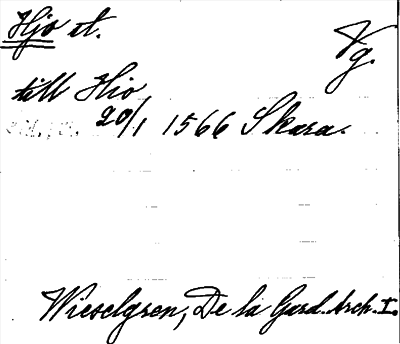 Hjo st. Vg.
till Hio
20/1 1566 Skara.
Wieselgren, De la Gard. Arch. I.